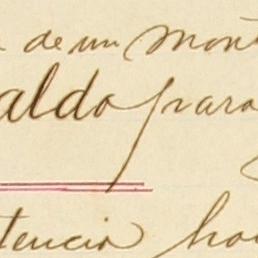 de un mon
aldo para
tencia ha